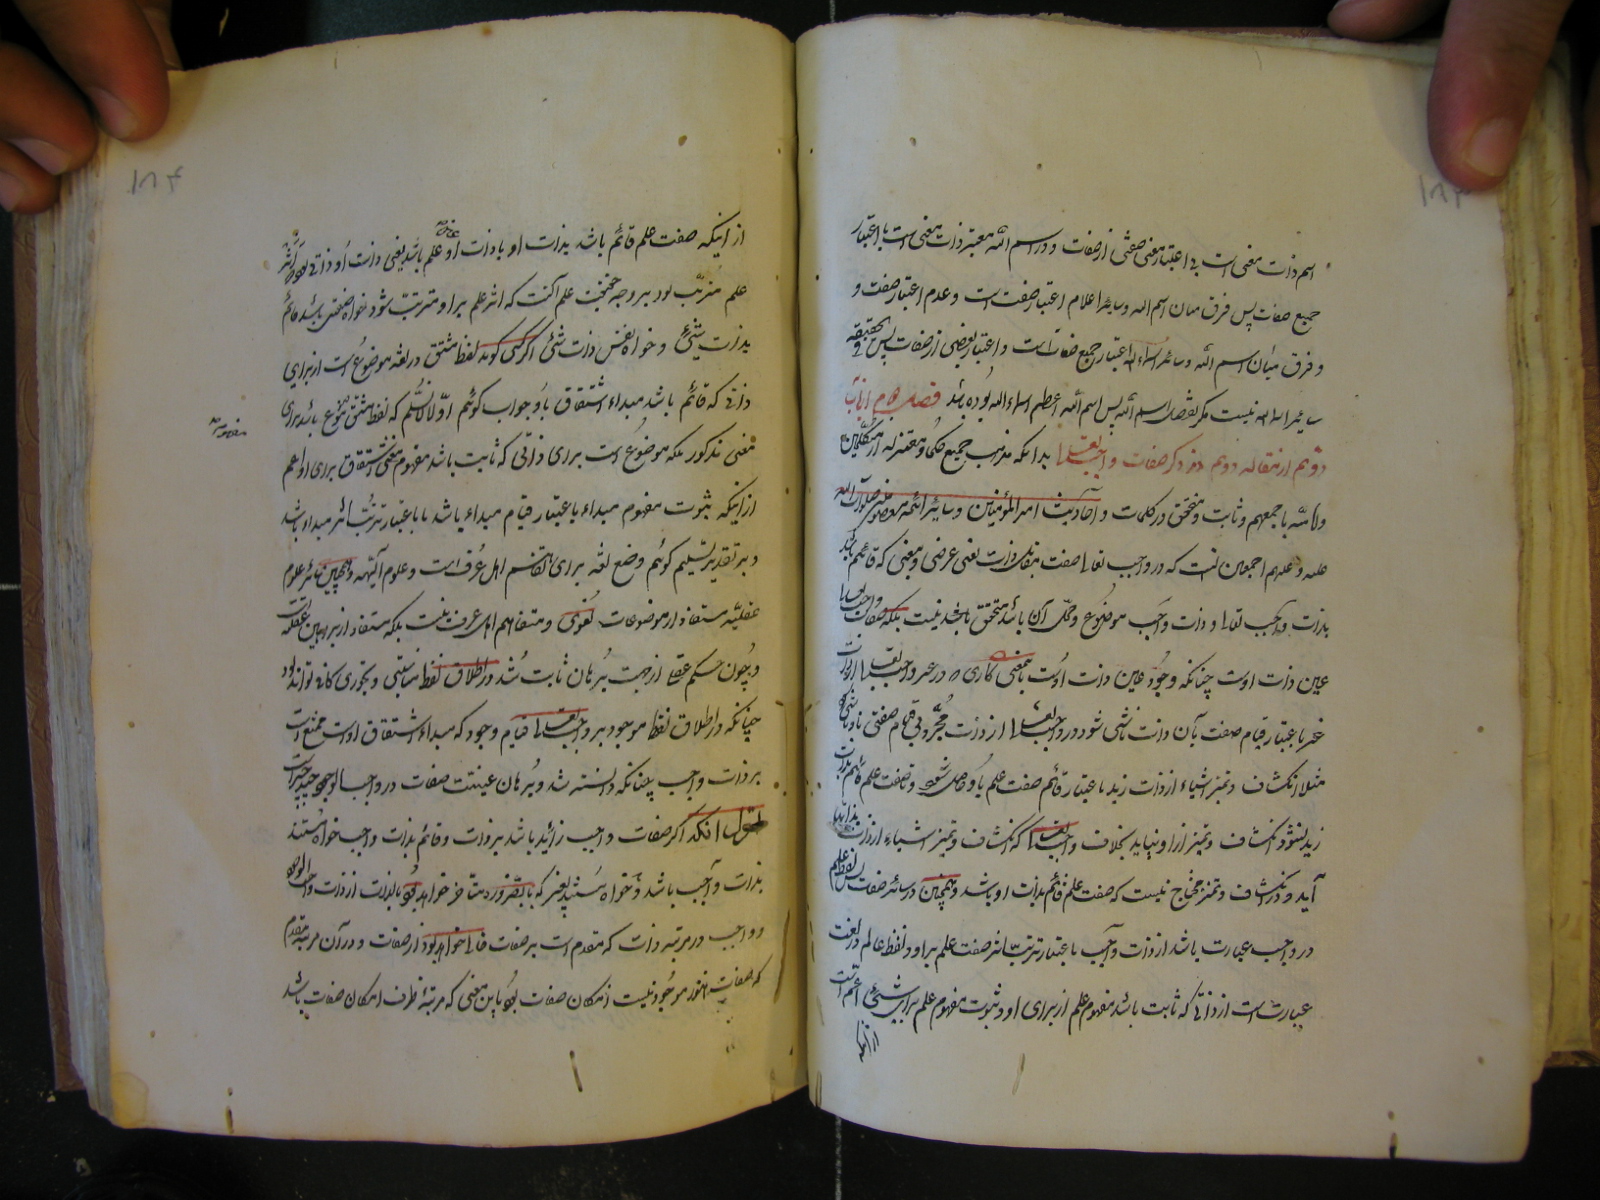 ۱۸۳
اسم ذات معنی است بی اعتبار معنی صفتی از صفات و در اسم الله معتبر ذات معنی است با اعتبار
جمیع صفات پس فرق میان اسم الله و سایر اعلام اعتبار صفت است و عدم اعتبار صفت و
و فرق میان اسم الله و سایر اسماء الله اعتبار جمیع صفات است و اعتبار بعضی از صفات پس بحقیقة
سایر اسماء الله نیست مکر تفصیل اسم الله پس اسم الله اعظم اسماء الله بوده باشد فصل از باب
دویم از مقاله دویم در ذکر صفات واجب تعالی بدانکه مذهب جمیع حکما و معتزله از متکلمین
و امامیه باجمعهم و ثابت و متحقق در کلمات و احادیث امیر المؤمنین و سایر ائمه معصومین صلوات الله
علیه و علیهم اجمعین انست که در واجب تعالی صفت مقابل ذات یعنی عرضی و معنی که قائم باشد
بذات واجب تعالی و ذات واجب موضوع و محل آن باشد متحقق نیست بلکه صفات واجب تعالی
عین ذات اوست چنانکه وجود عین ذات اوست باینمعنی که کاری که در غیر واجب تعالی از ذات
غیر باعتبار قیام صفت بآن ذات ناشی شود در واجب تعالی از ذات مجرد بی قیام صفتی باو ناشی شود
مثلا انکشاف و تمیز اشیاء از ذات زید باعتبار قائم صفت علم باو حاصل شود و تا صفت علم قائم بذات
زید نشود انکشاف و تمیز از او نیاید بخلاف واجب تعالی که انکشاف و تمیز اشیاء از ذات بذاتها
آید و در انکشاف و تمیز محتاج نیست که صفت علم قائم بذات او باشد و همچنین در سایر صفات پس لفظ علم
در واجب عبارت باشد از ذات واجب باعتبار ترتب اثر صفت علم بر او و لفظ عالم در لغت
عبارت است از ذاتی که ثابت باشد مفهوم علم از برای او و ثبوت مفهوم علم برای شیئ اعم است
از اینکه
۱۸۴
از اینکه صفت علم قائم باشد بذات او یا ذات او علم باشد یعنی ذات او ذاتی بود که اثر
علم مترتب بود بر وجه حقیقت علم آنست که اثر علم بر او مترتب شود خواه صفتی باشد قائم
بذات شیئ و خواه نفس ذات شیئ اکر کسی کوید لفظ مشتق در لغه موضوع است از برای
ذاتی که قائم باشد مبداء اشتقاق باو جواب کوئیم اولا لانسلم که لفظ مشتق موضوع باشد برای
معنی مذکور بلکه موضوع است برای ذاتی که ثابت باشد مفهوم مشتق برای او اعم
از اینکه ثبوت مفهوم مبداء باعتبار قیام مبداء باشد یا باعتبار ترتب اثر مبداء باشد
و بر تقدیر تسلیم کوئیم وضع لغه برای تفاهم اهل عرف است و علوم آلهیه و همچنین سایر علوم
عقلیه مستفاد از موضوعات لغوی و متفاهم اهل عرف نیست بلکه مستفاد از براهین عقلیه
و چون بحکم عقل از جهت برهان ثابت شد در اطلاق لفظ مناسبتی و تجوزی کافی تواند بود
چنانکه در اطلاق لفظ موجود بر واجب تعالی قیام وجود که مبداء اشتقاق اوست ممتنع است
بر ذات واجب چنانکه دانسته شد و برهان عینیت صفات در واجب الوجود
آنکه اکر صفات واجب زائد باشد بر ذات و قائم بذات واجب خواه مستند
بذات واجب باشد و خواه مستند بغیر که بالضروره متأخر خواهد بود بالذات از ذات واجب الوجود
و واجب در مرتبه ذات که مقدم است بر صفات خالی خواهد بود از صفات و در آن مرتبه مقدم
که صفات هنوز موجود نیست امکان صفات بود باین معنی که مرتبه ظرف امکان صفات باشد